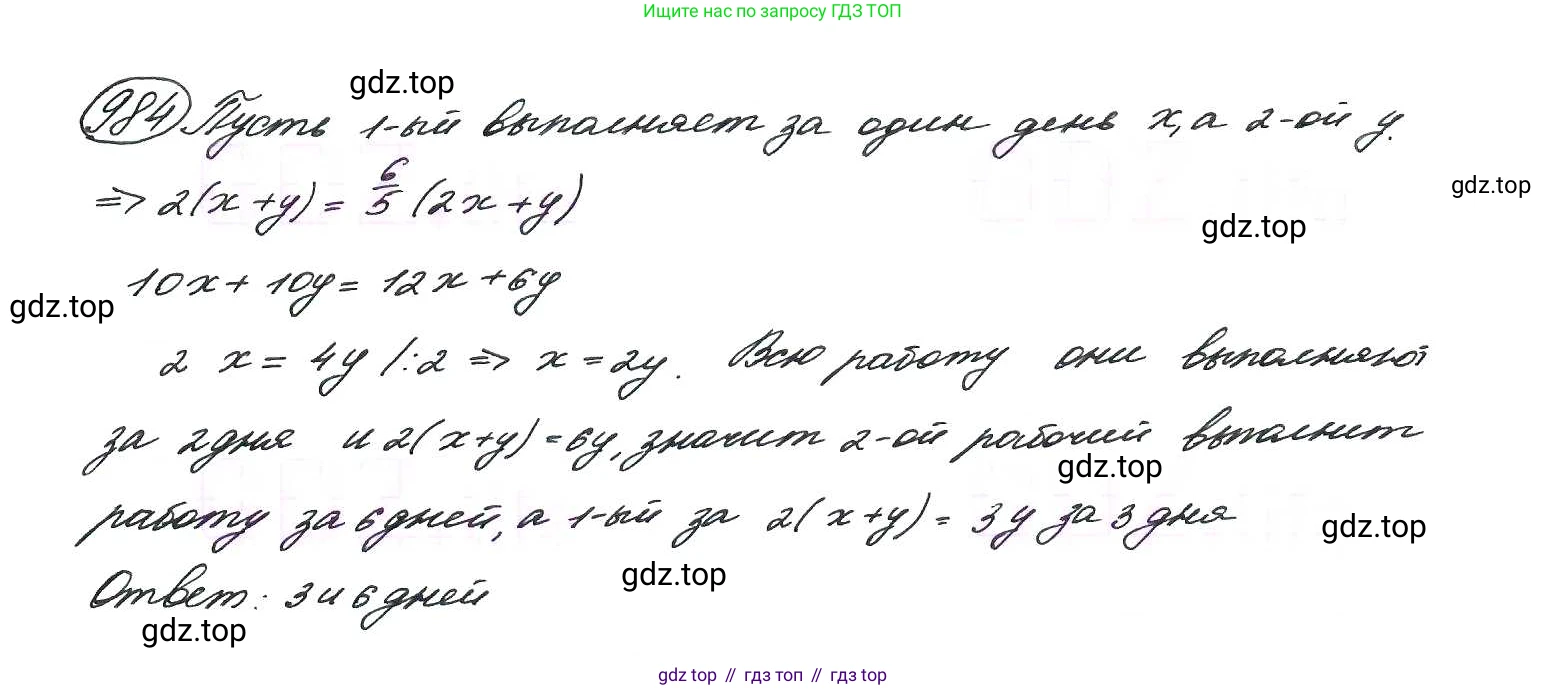 Ищите нас по запросу ГДЗ ТОП
gdz.top
984 Пусть 1-ый выполняет за один день x, а 2-ой y.
gdz.top
=> 2(x+y) = 6/5 (2x+y)
gdz.top
10x + 10y = 12x + 6y
gdz.top
2 x = 4y /:2 => x = 2y. Всю работу они выполняют
за 2 дня и 2(x+y) = 6y, значит 2-ой рабочий выполнит
gdz.top
работу за 6 дней, а 1-ый за 2(x+y) = 3y за 3 дня
gdz.top
gdz.top
Ответ: 3 и 6 дней
gdz.top
gdz top // гдз топ // гдз top